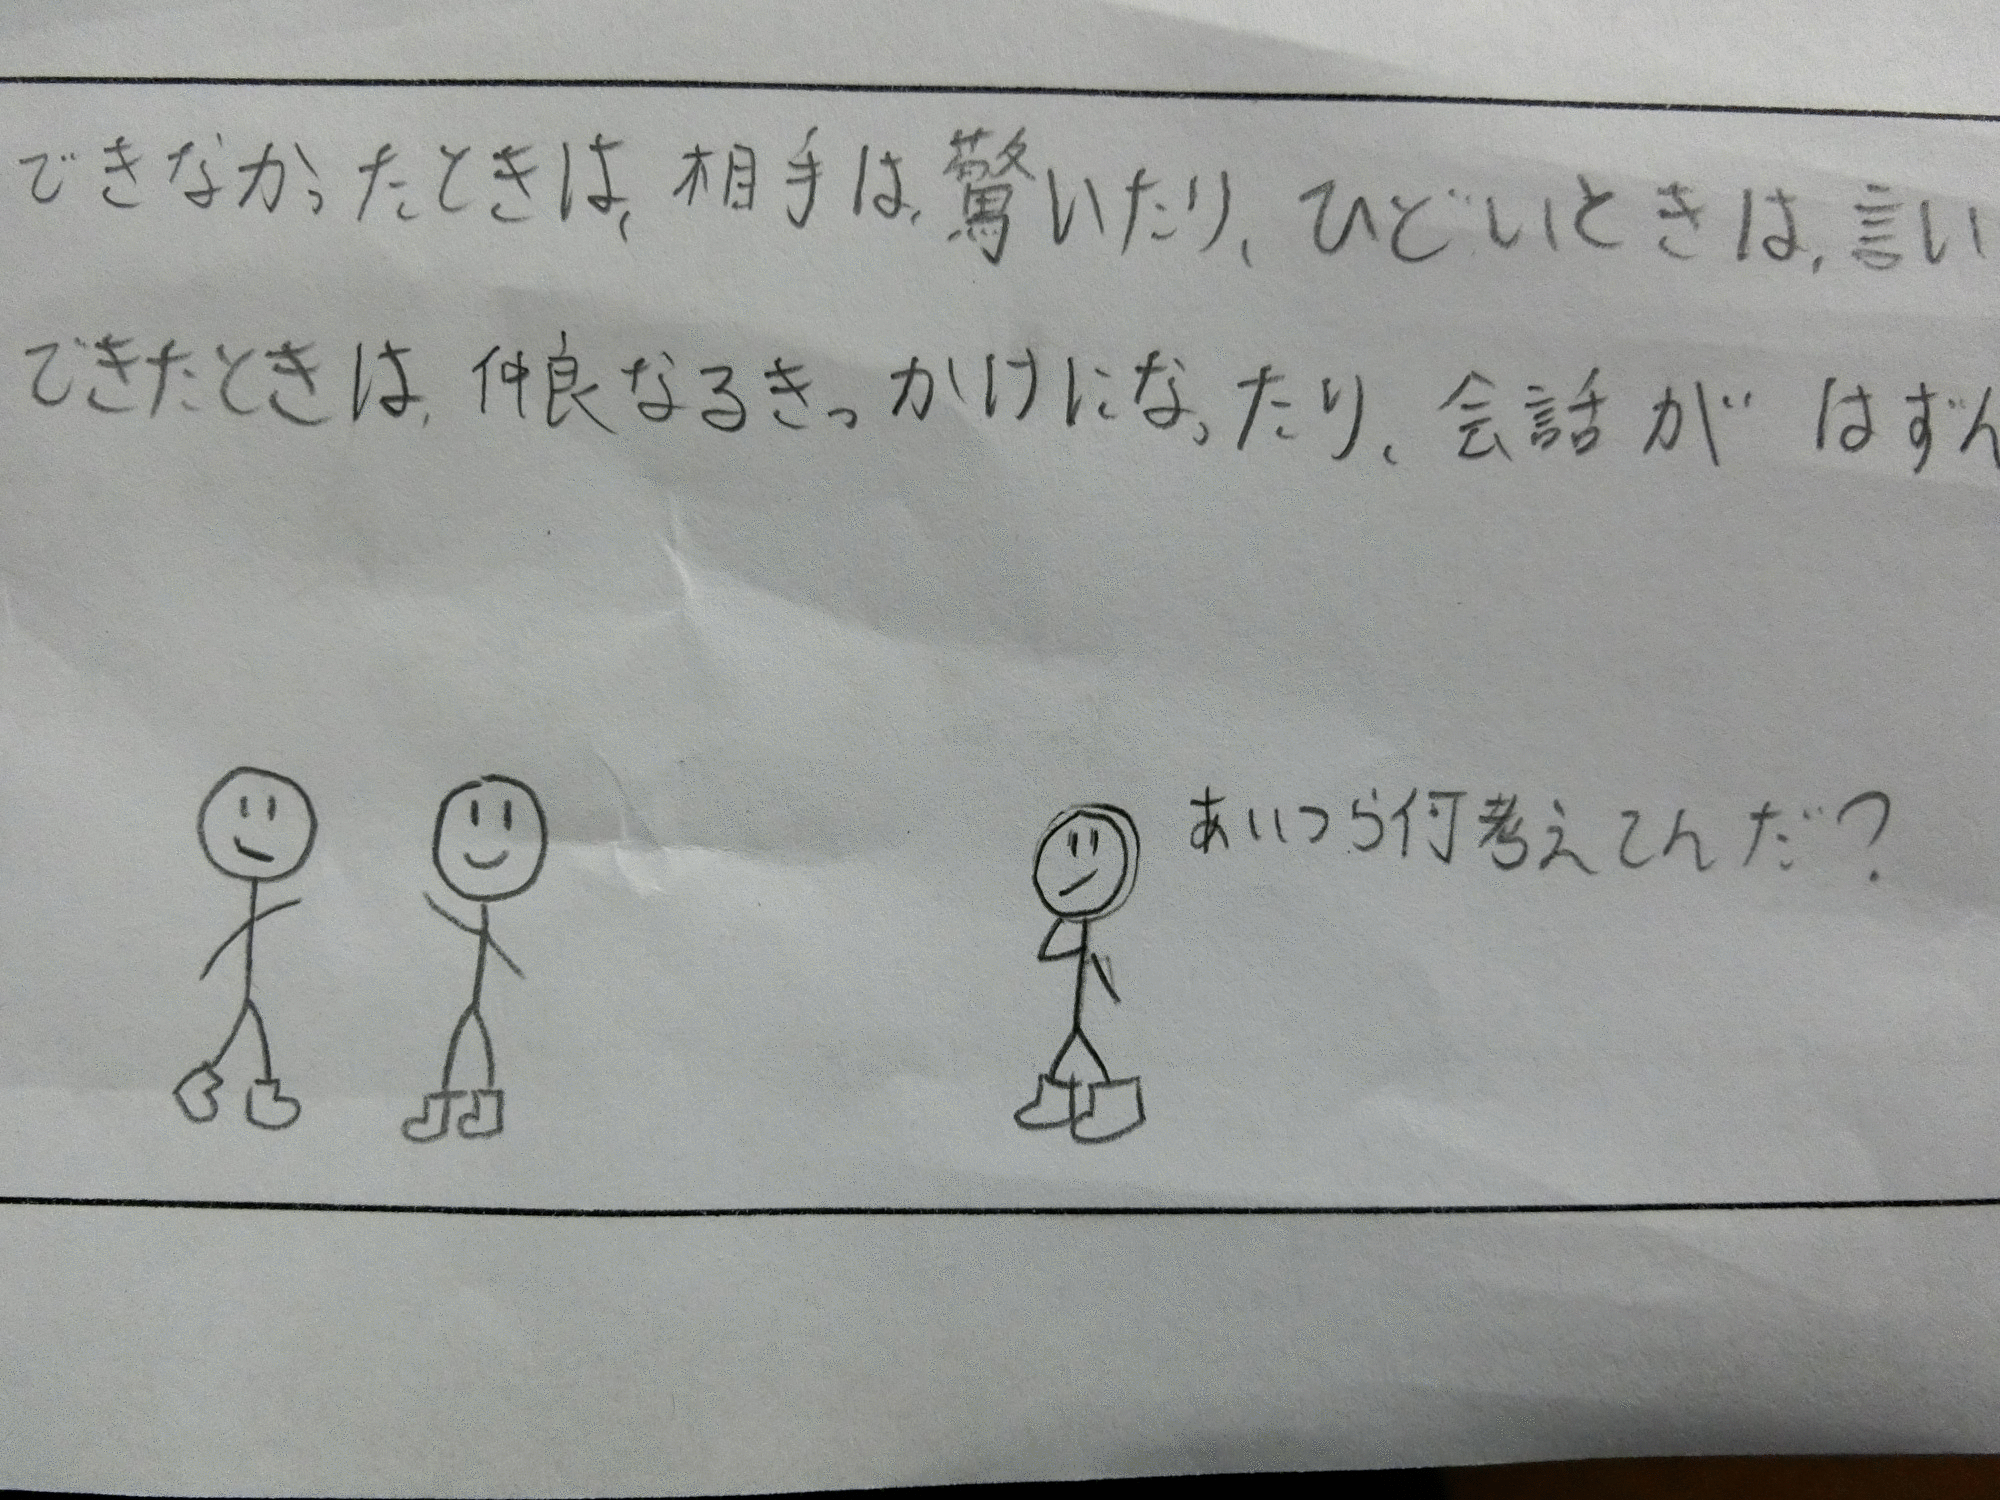 できなかったときは、相手は、驚いたり、ひどいときは、言い
できたときは、仲良なるきっかけになったり、会話がはずん
あいつら何考えてんだ?